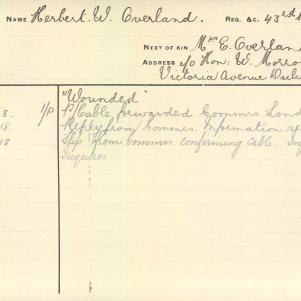 NAME Herbert. W. Overland. REG. &C. 43rd
NEXT OF KIN Mrs E. Overland
ADDRESS c/o Hon: W. Morro
Victoria Avenue Dul
"Wounded"
8. 1/P P/Cable forwarded Commrs Lond
18. Reply from Commrs. Information se
18 Slip from Commrs confirming cable. Inq
Inquiries